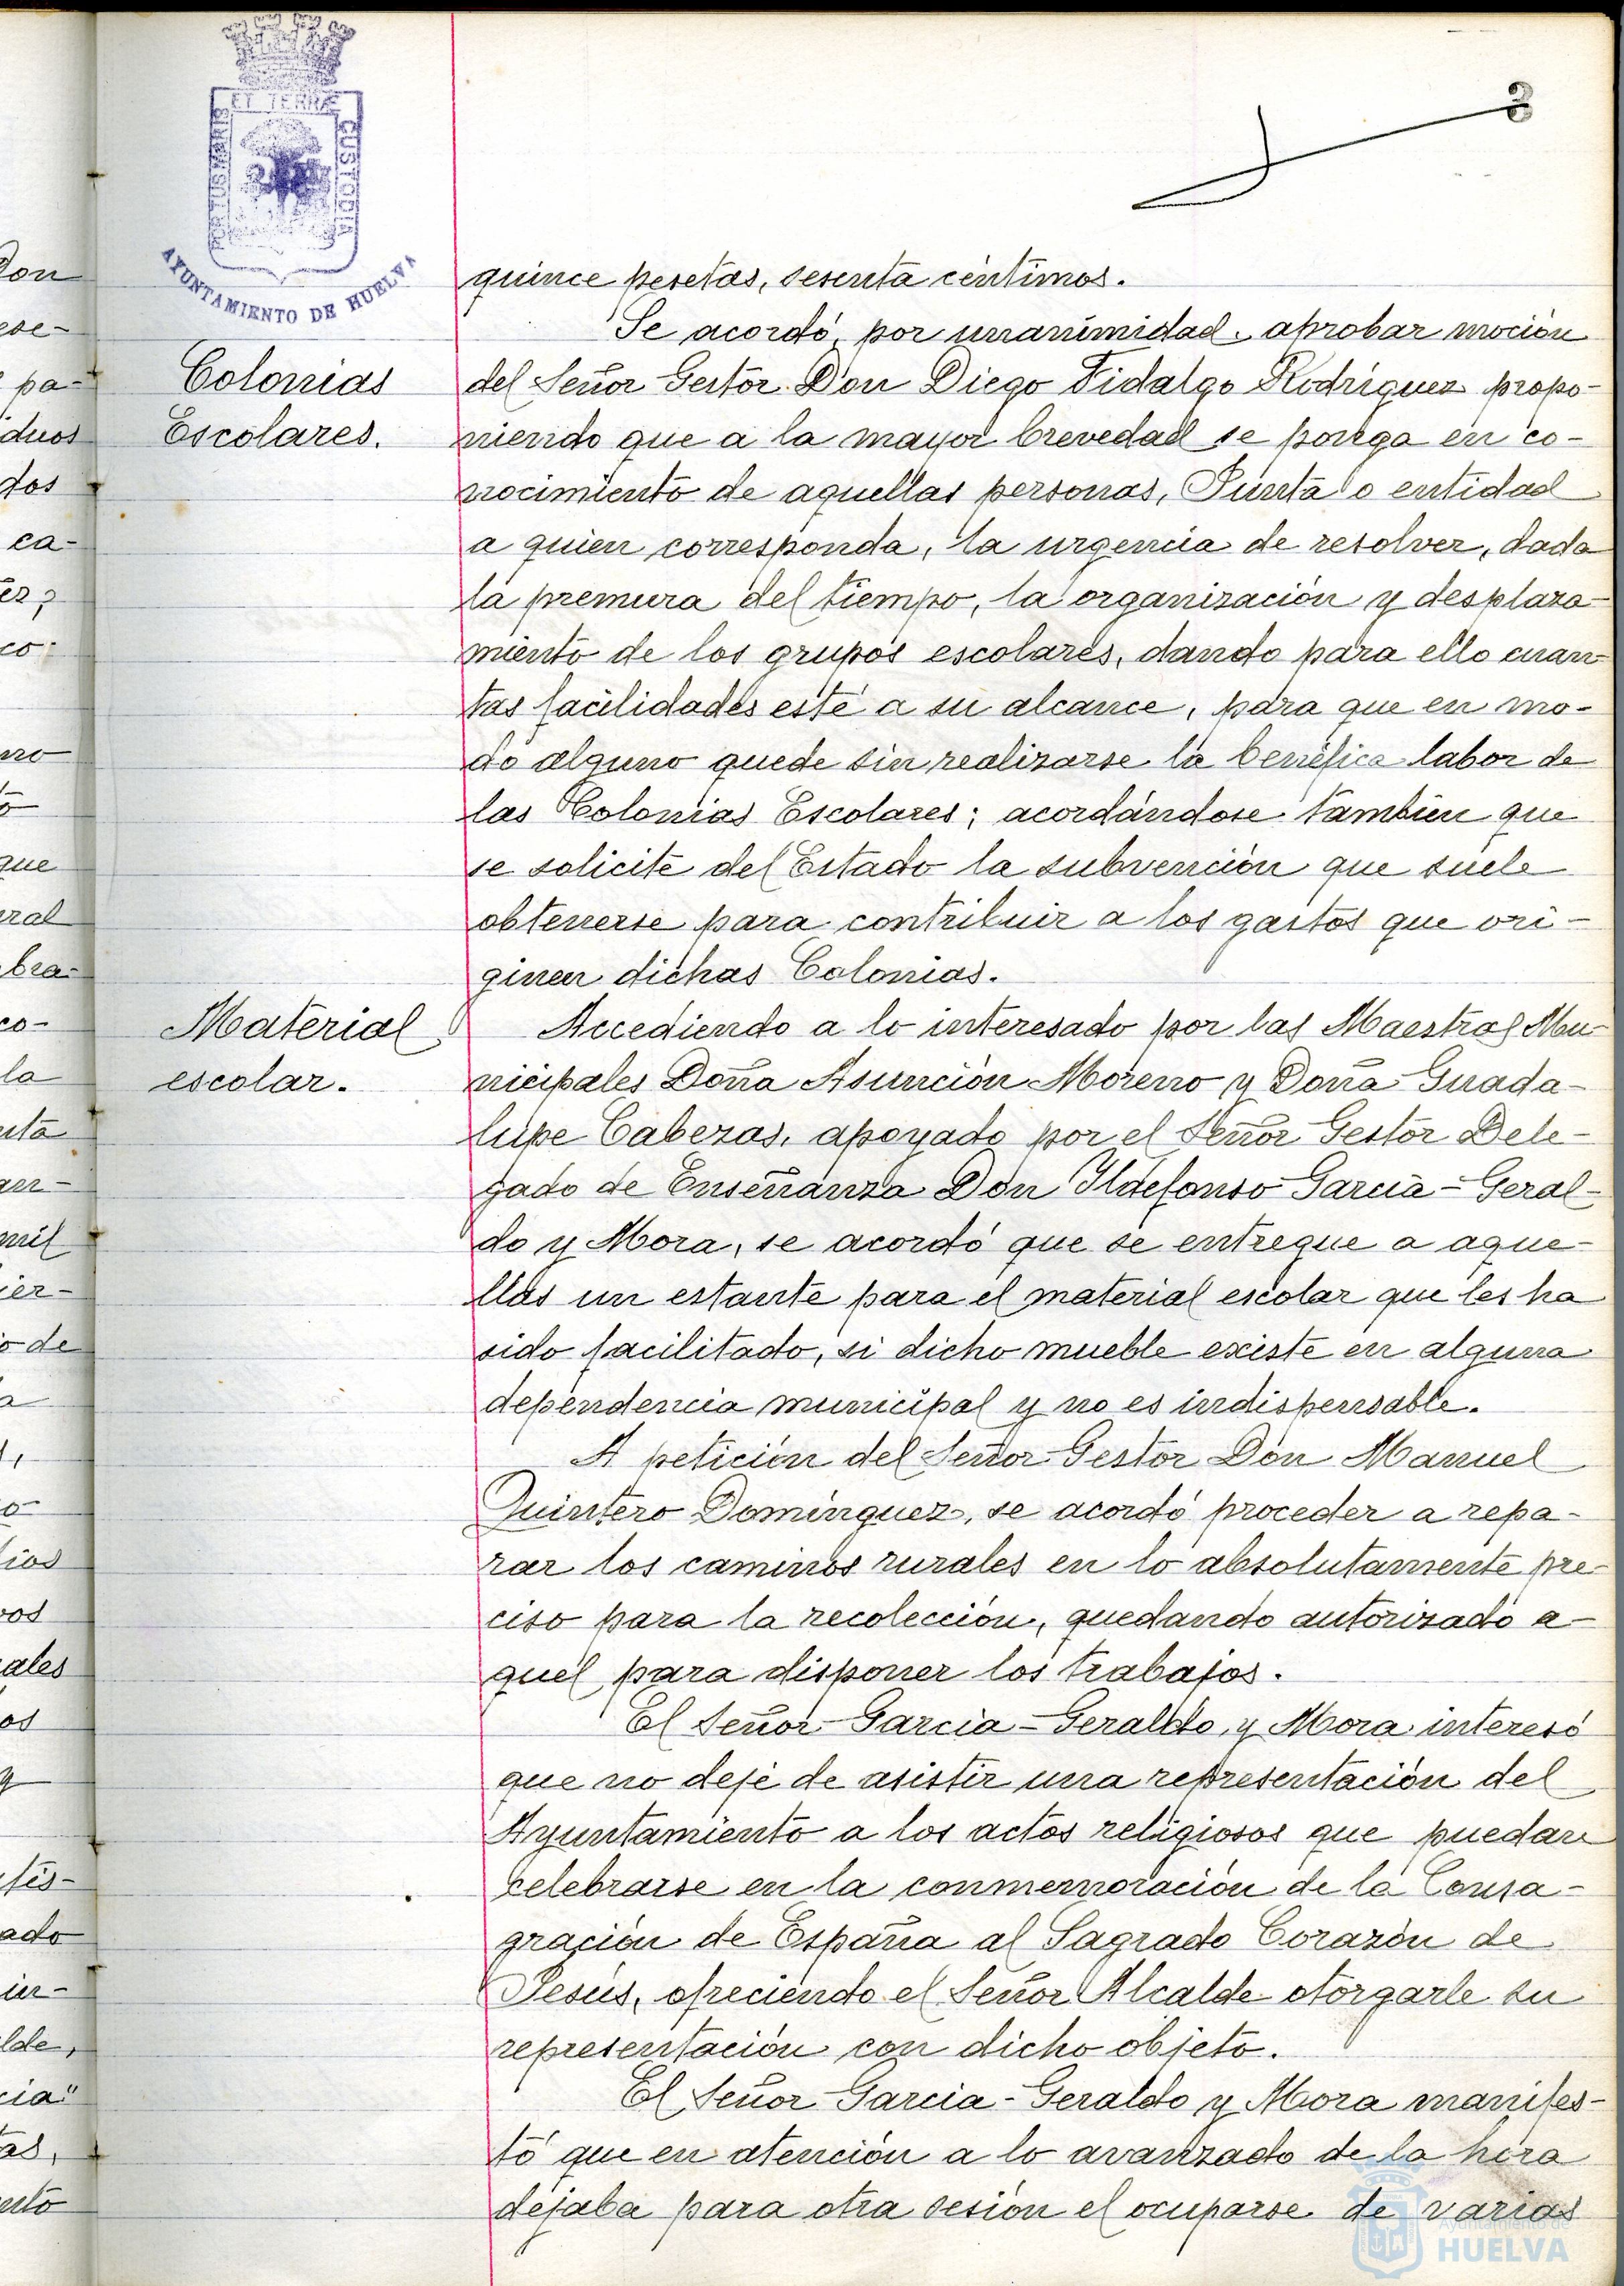 3
PORTUS MARIS
ET TERRÆ
CUSTODIA
AYUNTAMIENTO DE HUELVA
quince pesetas, sesenta céntimos.
Colonias
Escolares.
Se acordó, por unanimidad, aprobar moción
del Señor Gestor Don Diego Fidalgo Rodríguez propo-
niendo que a la mayor brevedad se ponga en co-
nocimiento de aquellas personas, Junta o entidad
a quien corresponda, la urgencia de resolver, dada
la premura del tiempo, la organización y desplaza-
miento de los grupos escolares, dando para ello cuan-
tas facilidades esté a su alcance, para que en mo-
do alguno quede sin realizarse la benéfica labor de
las Colonias Escolares; acordándose también que
se solicite del Estado la subvención que suele
obtenerse para contribuir a los gastos que ori-
ginen dichas Colonias.
Material
escolar.
Accediendo a lo interesado por las Maestras Mu-
nicipales Doña Asunción Moreno y Doña Guada-
lupe Cabezas, apoyado por el Señor Gestor Dele-
gado de Enseñanza Don Ildefonso García-Geral-
do y Mora, se acordó que se entregue a aque-
llas un estante para el material escolar que les ha
sido facilitado, si dicho mueble existe en alguna
dependencia municipal y no es indispensable.
A petición del Señor Gestor Don Manuel
Quintero Domínguez, se acordó proceder a repa-
rar los caminos rurales en lo absolutamente pre-
ciso para la recolección, quedando autorizado a-
quel para disponer los trabajos.
El Señor García-Geraldo y Mora interesó
que no deje de asistir una representación del
Ayuntamiento a los actos religiosos que puedan
celebrarse en la conmemoración de la Consa-
gración de España al Sagrado Corazón de
Jesús, ofreciendo el Señor Alcalde otorgarle su
representación con dicho objeto.
El Señor García-Geraldo y Mora manifes-
tó que en atención a lo avanzado de la hora
dejaba para otra sesión el ocuparse de varias
Ayuntamiento de
HUELVA